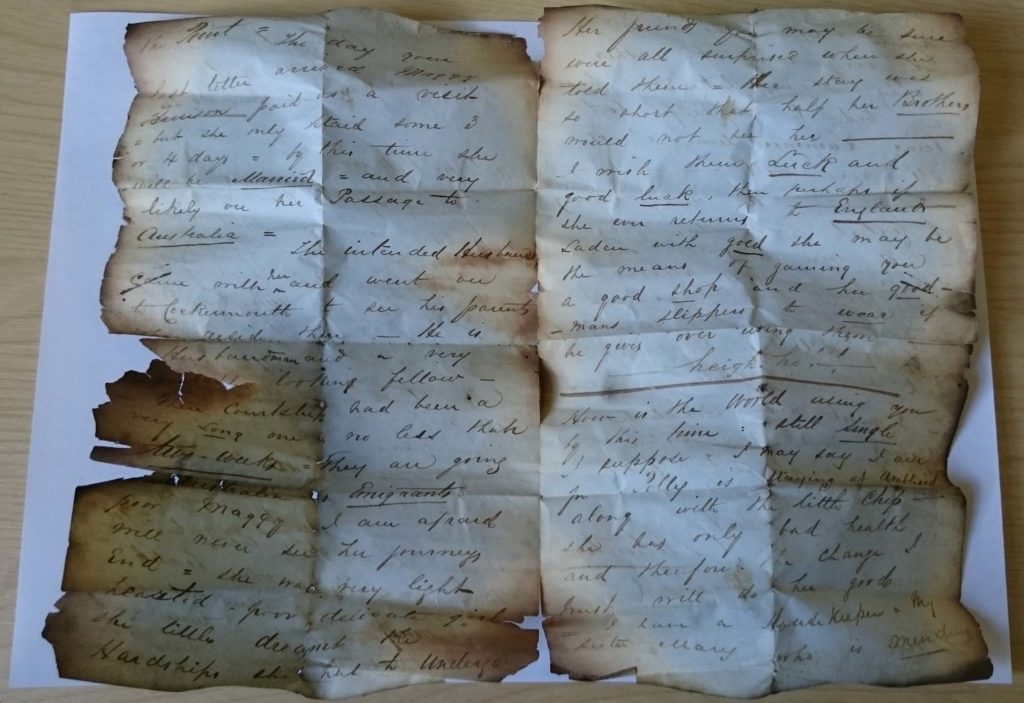 the Post = The day your
last letter arrived Maggy
paid us a visit
= but she only staid some 3
or 4 days = by this time she
will be Married = and very
likely on her Passage to
Australia =
The intended Husband
came with her and went on
to Cockermouth to see his parents
who reside there — He is
Husbandman and a very
looking fellow —
Their Courtship had been a
very Long one = no less than
two-weeks = They are going
Australia as Emigrants
poor Maggy I am afraid
will never see her journeys
End = she was very light
hearted - poor delicate girl
she little dreamt the
Hardships she had to Undergo
Her friends you may be sure
were all surprised when she
told them = Her stay was
so short that half her Brothers
would not see her
I wish them Luck and
good luck. then perhaps if
she ever returns to England
Laden with gold she may be
the means of gaining you
a good shop and her good-
-mans slippers to wear if
he gives over using them
heigh ho!!
How is the World using you
by this time = still single
I suppose = I may say I am
for Polly is staying at
along with the little Chip
she has only bad health
and therefore a change I
trust will do her good
= I have a HouseKeeper = My
sister Mary who is mending